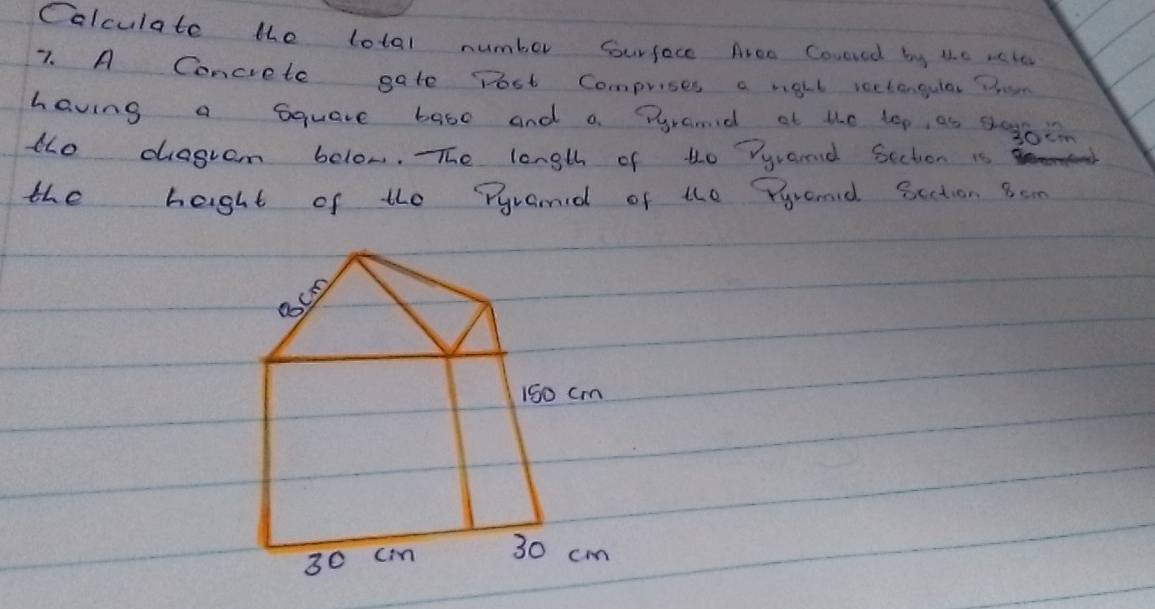 Calculate the total number Surface Area Covered by the water
7. A Concrete gate Post Comprises a right rectangular Prism
having a Square base and a Pyramid at the top, as shown in
30 cm
the diagram below. The length of the Pyramid Section is
the height of the Pyramid of the Pyramid Section 8cm
8cm
150 cm
30 cm
30 cm